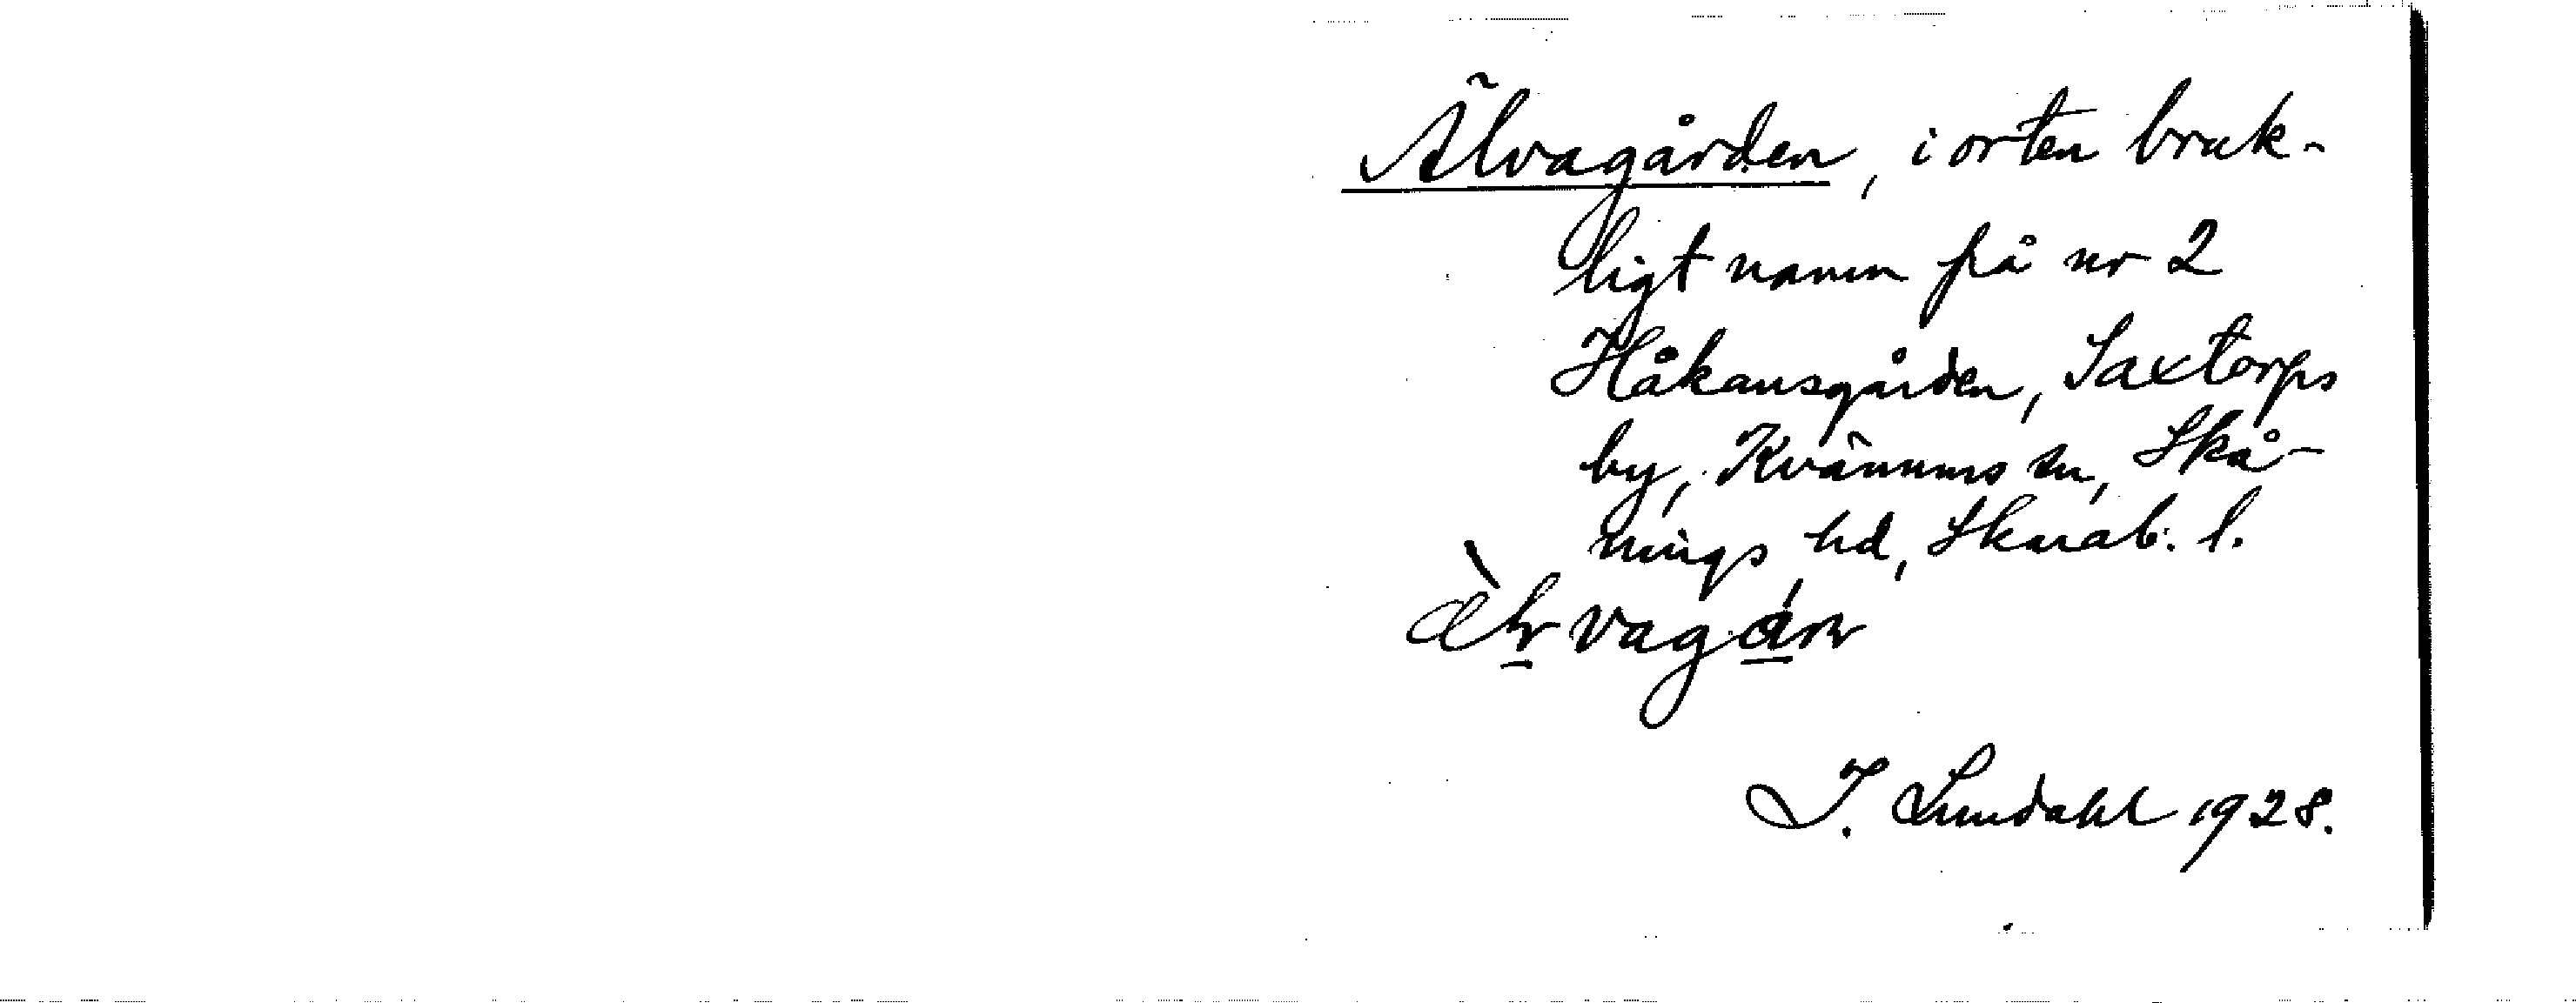 Älvagården, i orten bruk-
ligt namn på nr 2
Håkansgården, Saxtorps
by, Kvänums sn, Skå-
nings hd, Skarab. l.
I. Lundahl 1928.